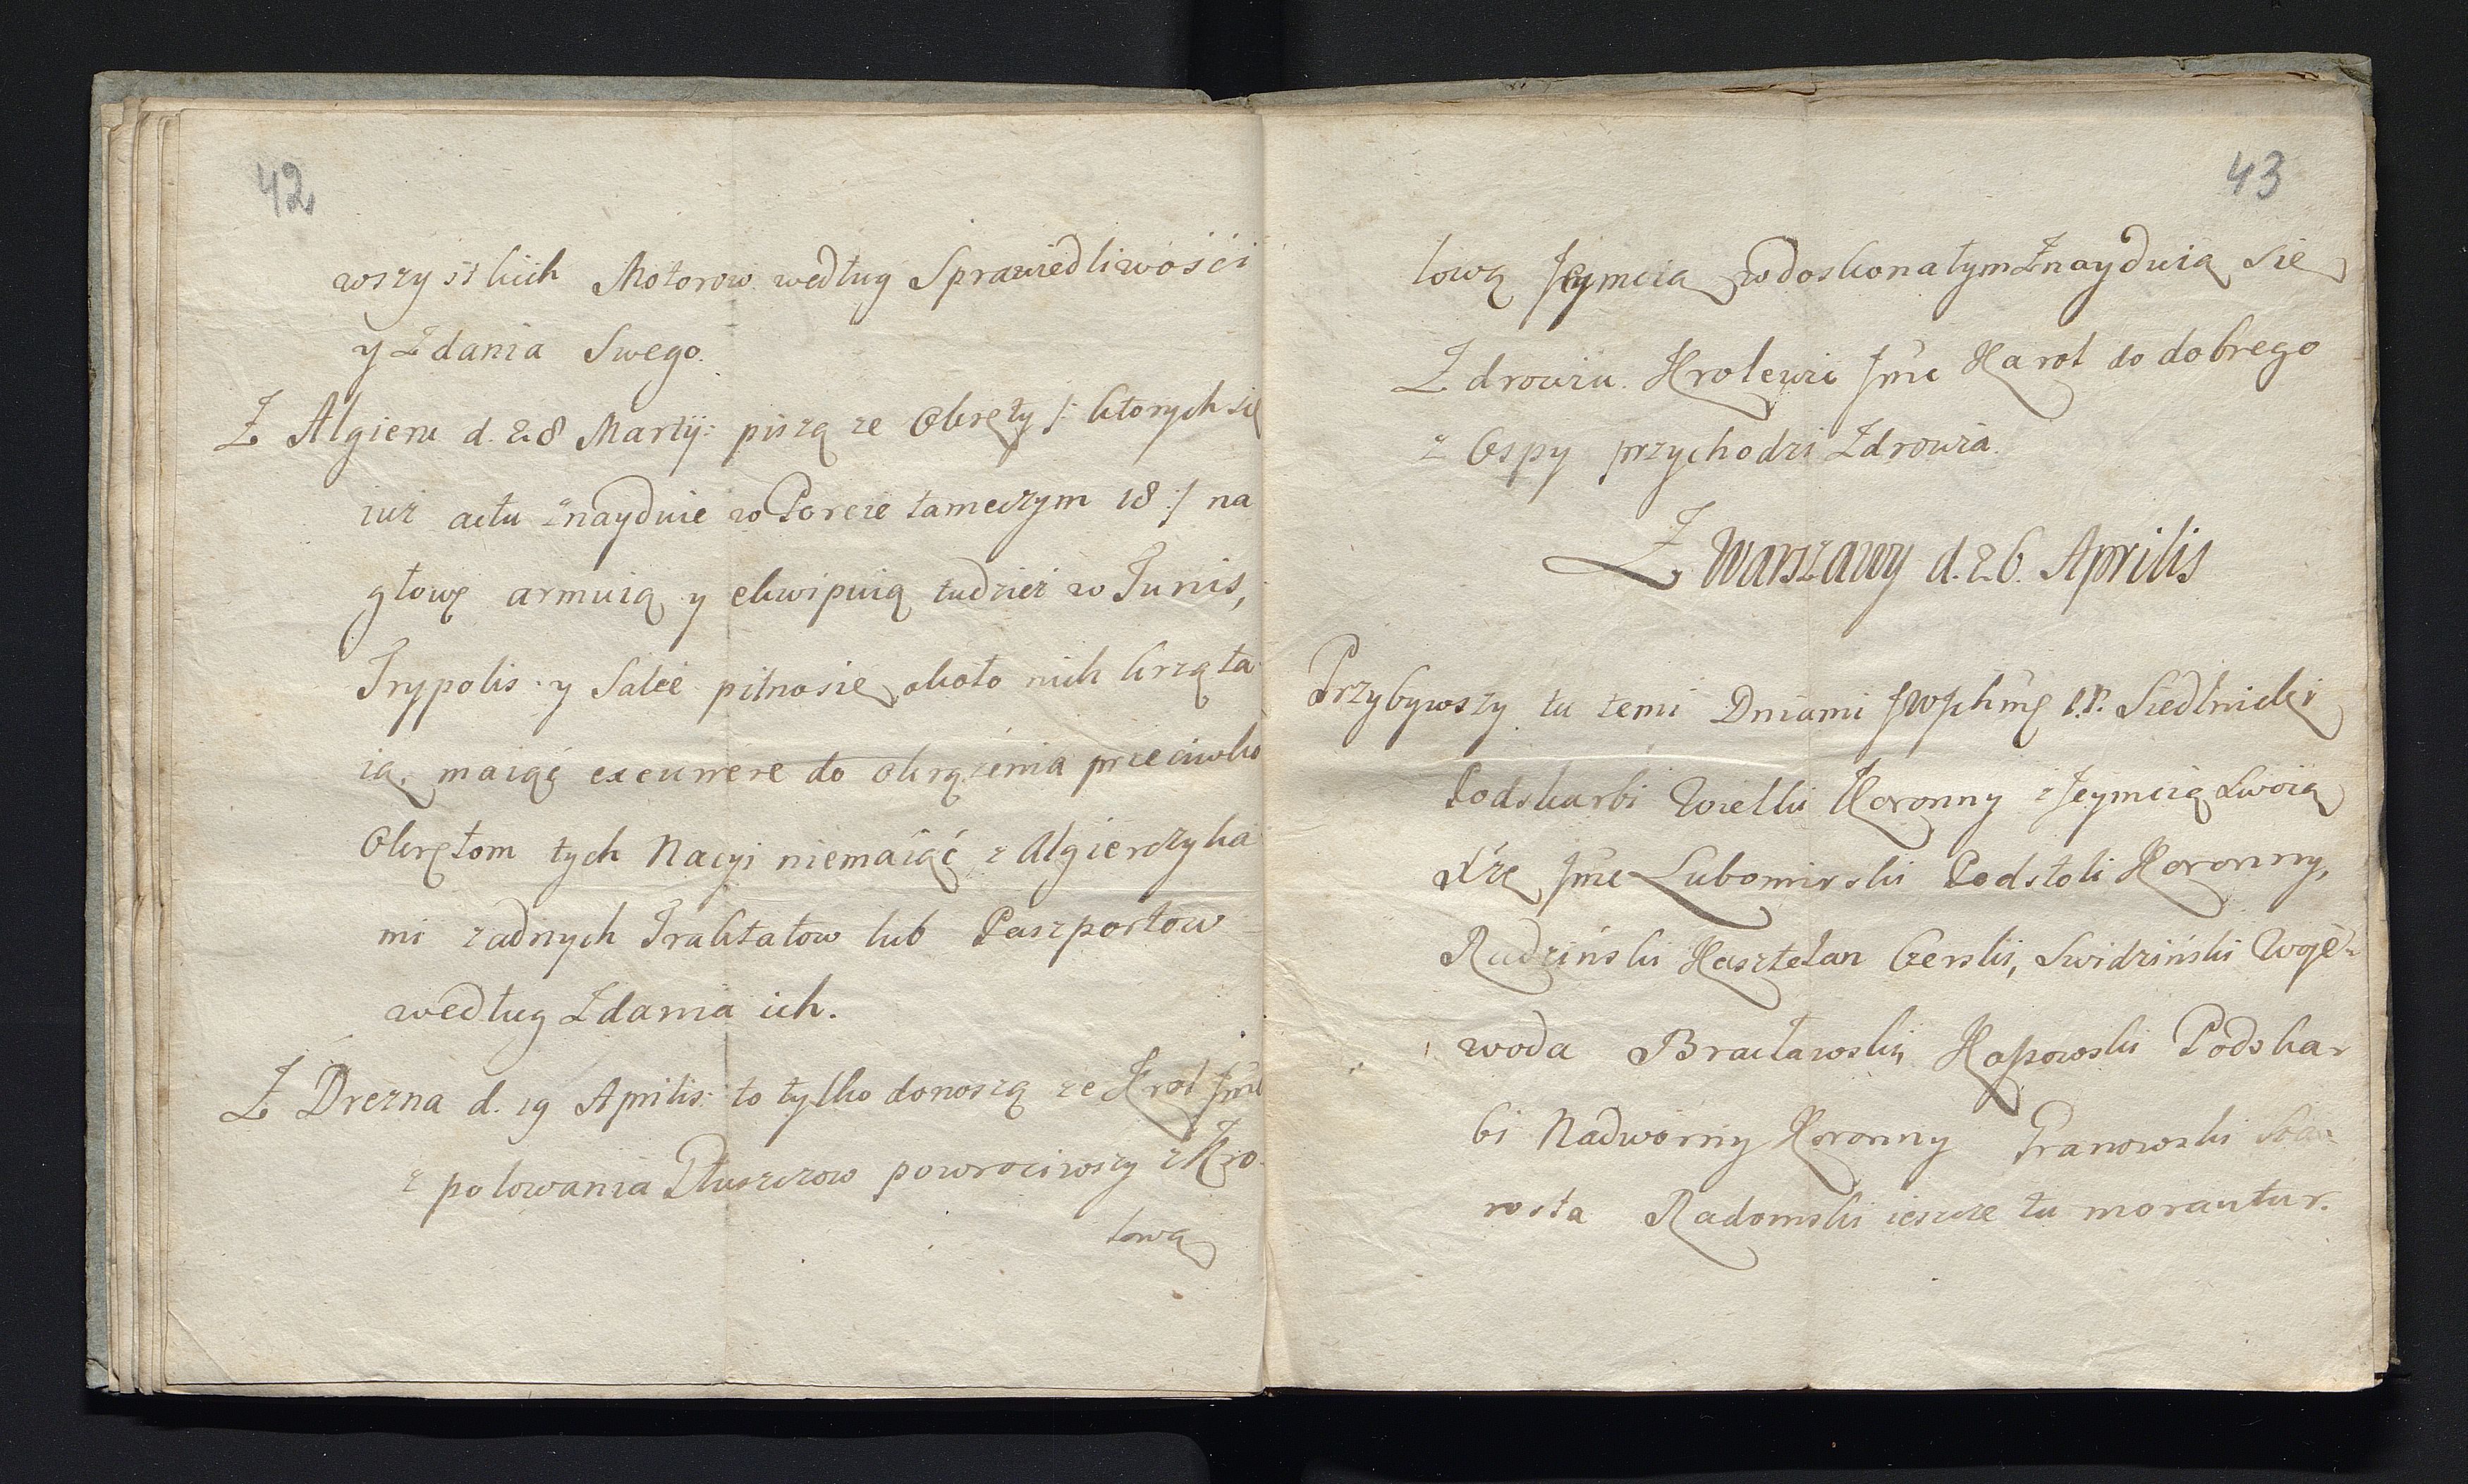 42
wszystkich Motorow według Sprawiedliwości
y Zdania Swego.
Z Algieru d. 28 Martij: piszą ze Okręty /: ktorych się
iuz actu znayduie w Porcie tameczym 18 :/ na
głowę armuią y ekwipuią tudziez w Tunis,
Trypolis y Salee pilno się około nich krząta
ią, maiąć excurrere do okrązenia przeciwko
Okrętom tych Nacyi niemaiąć z Algierczyka
mi zadnych Traktatow lub Paszportow
według Zdania ich.
Z Drezna d. 19 Aprilis: to tylko donoszą ze Krol Jmć
z polowania Głuszcow powrociwszy z Kro-
lową
43
lową Jeymcią w doskonałym Znayduią się
Zdrowiu. Krolewic Jmć Karol do dobrego
z Ospy przychodzi Zdrowia.
Z Warszawy d. 26. Aprilis
Przybywszy tu temi Dniami P.P. Siedlnicki
Podskarbi Wielki Koronny z Jeymcią Swoią
Xże Jmć Lubomirski Podstoli Koronny,
Rudziński Kasztelan Czerski, Swidziński Woje-
woda Bracławski, Kossowski Podskar
bi Nadworny Koronny Granowski Sta-
rosta Radomski ieszcze tu morantur.